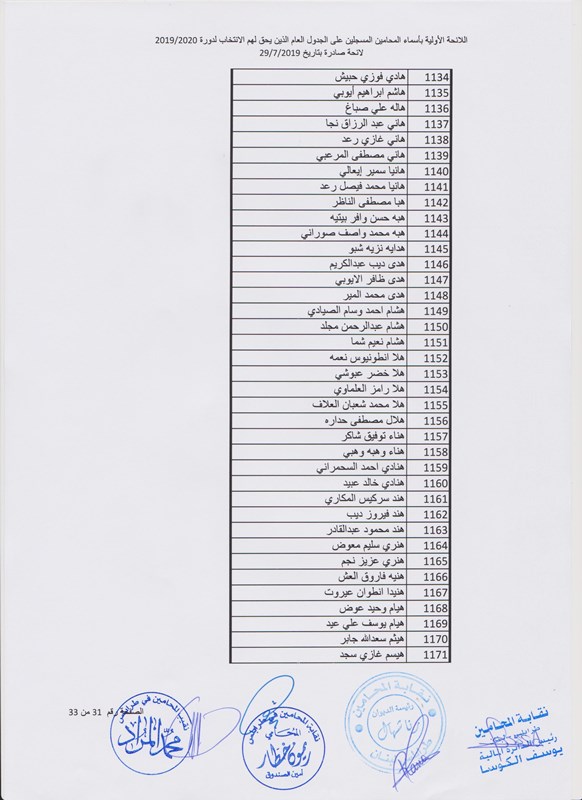 اللائحة الأولية بأسماء المحامين المسجلين على الجدول العام الذين يحق لهم الانتخاب لدورة 2019/2020
لائحة صادرة بتاريخ 29/7/2019
1134 هادي فوزي حبيش
1135 هاشم ابراهيم أيوبي
1136 هاله علي صباغ
1137 هاني عبد الرزاق نجا
1138 هاني غازي رعد
1139 هاني مصطفى المرعبي
1140 هانيا سمير إيعالي
1141 هانيا محمد فيصل رعد
1142 هبا مصطفى الناظر
1143 هبه حسن وافر بيتيه
1144 هبه محمد واصف صوراني
1145 هدايه نزيه شبو
1146 هدى ديب عبدالكريم
1147 هدى ظافر الايوبي
1148 هدى محمد المير
1149 هشام احمد وسام الصيادي
1150 هشام عبدالرحمن مجلد
1151 هشام نعيم شما
1152 هلا انطونيوس نعمه
1153 هلا خضر عبوشي
1154 هلا رامز العلماوي
1155 هلا محمد شعبان العلاف
1156 هلال مصطفى حداره
1157 هناء توفيق شاكر
1158 هناء وهبه وهبي
1159 هنادي احمد السحمراني
1160 هنادي خالد عبيد
1161 هند سركيس المكاري
1162 هند فيروز ديب
1163 هند محمود عبدالقادر
1164 هنري سليم معوض
1165 هنري عزيز نجم
1166 هنيه فاروق العش
1167 هنيدا انطوان عيروت
1168 هيام وحيد عوض
1169 هيام يوسف علي عيد
1170 هيثم سعدالله جابر
1171 هيسم غازي سجد
نقابة المحامين
نقابة المحامين
يوسف الكوسا
نقابة المحامين في طرابلس
المحامي
ريمون خطار
أمين الصندوق
نقيب المحامين في طرابلس
محمد المراد
الصفحة رقم 31 من 33